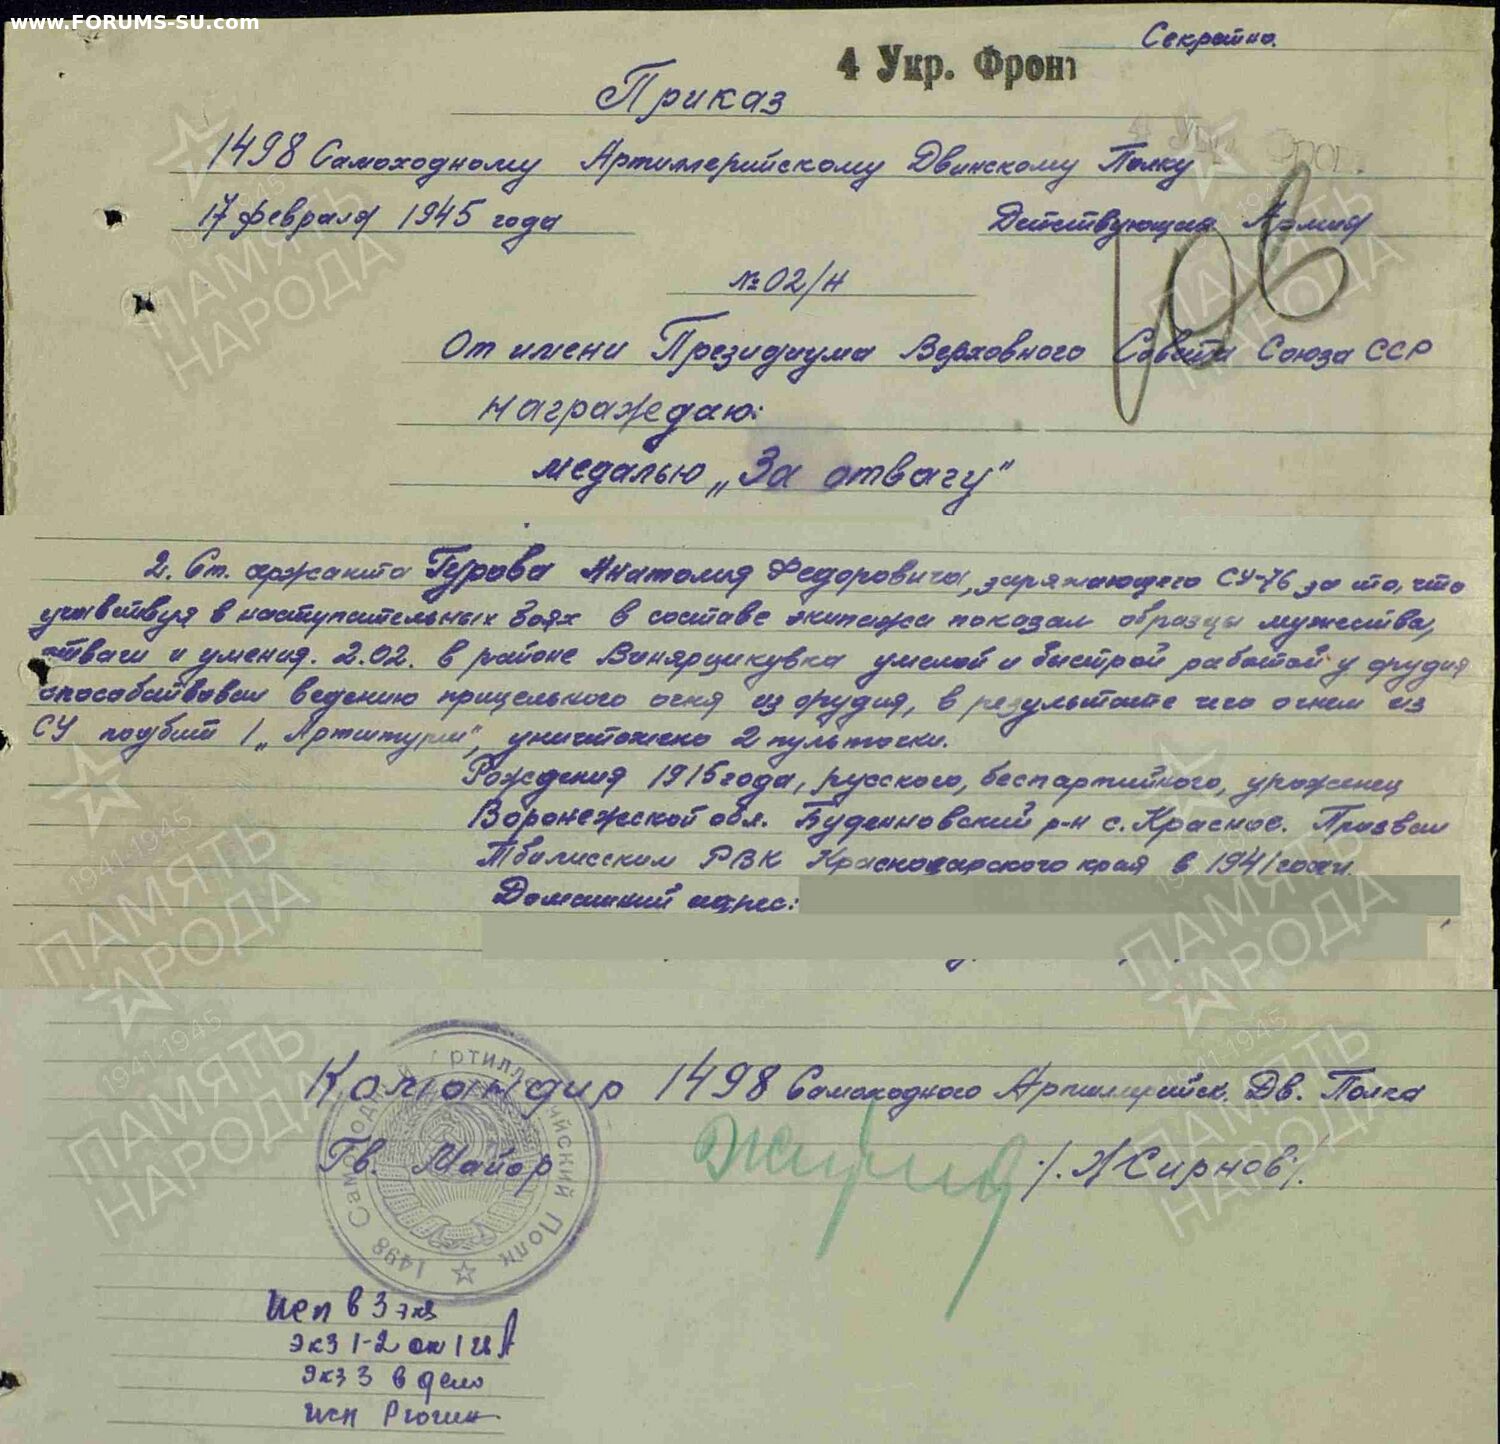 www.FORUMS-SU.com
Секретно.
4 Укр. Фронт
Приказ
1498 Самоходному Артиллерийскому Двинскому Полку
17 февраля 1945 года Действующая Армия
№ 02/н
От имени Президиума Верховного Совета Союза ССР
награждаю:
медалью „За отвагу"
2. Ст. сержанта Гурова Анатолия Федоровича, заряжающего СУ-76 за то, что
участвуя в наступательных боях в составе экипажа показал образцы мужества,
отваги и умения. 2.02. в районе умелой и быстрой работой у орудия
способствовал ведению прицельного огня из орудия, в результате чего огнем из
СУ подбит 1 „Артштурм", уничтожено 2 пульточки.
Рождения 1915 года, русского, беспартийного, уроженец
Воронежской обл. Буденновский р-н с. Красное. Призван
Тбилисским РВК Краснодарского края в 1941 году.
Домашний адрес:
Командир 1498 Самоходного Артиллерийск. Дв. Полка
Гв. Майор /. Жирнов/.
1498 Самоходный Артиллерийский Полк
исп в 3 экз
экз 1-2
экз 3 в дело
исп
ПАМЯТЬ НАРОДА
1941-1945